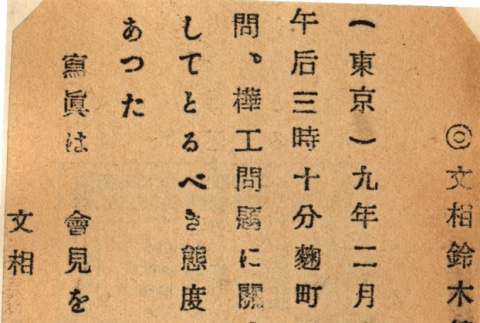 ◎文相鈴木
(東京)九年二月
午后三時十分麹町
問、樺工問題に關
してとるべき態度
あつた
寫眞は 會見を
文相